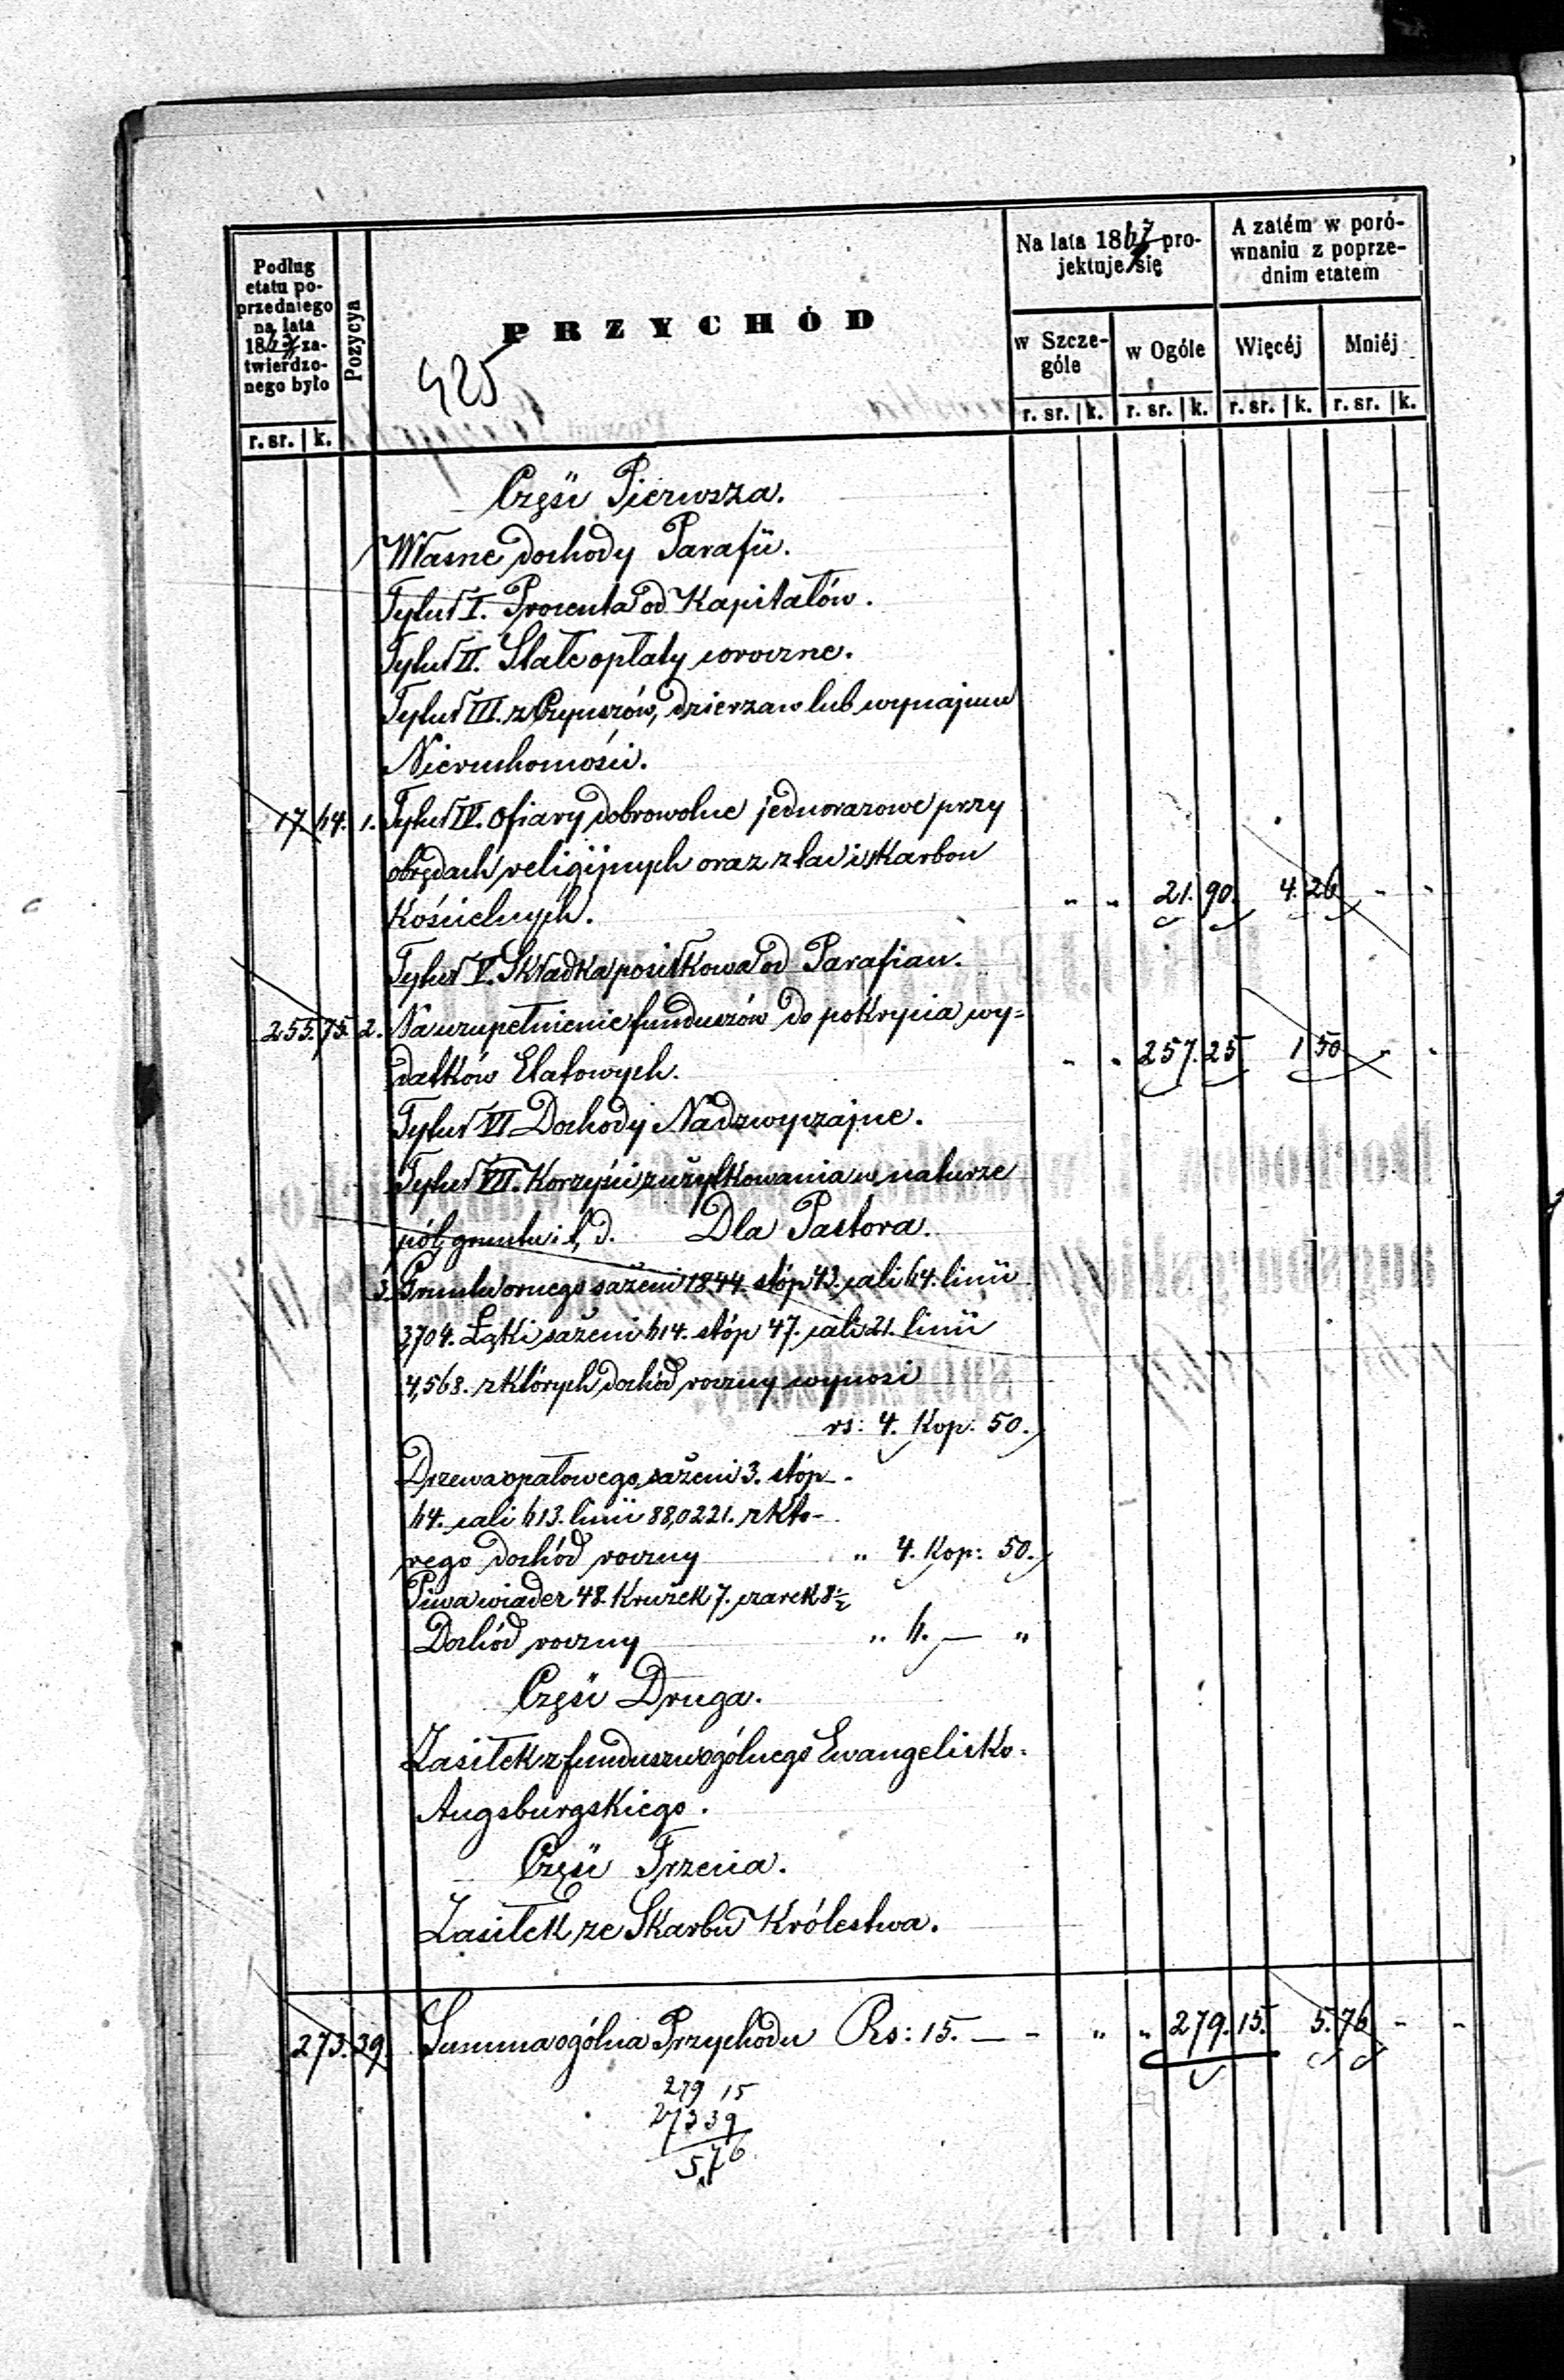 Podług
etatu po-
przedniego
na lata
18 za-
twierdzo-
nego było
r. sr. | k.
Pozycya
PRZYCHÓD
425
Na lata 1867 pro-
jektuje się
w Szcze-
góle
w Ogóle
r. sr. | k.
r. sr. | k.
A zatém w poró-
wnaniu z poprze-
dnim etatem
Więcéj
Mniéj
r. sr. | k.
r. sr. | k.
Część Pierwsza.
Własne dochody Parafii.
Tytuł I. Procenta od Kapitałów.
Tytuł II. Stałe opłaty coroczne.
Tytuł III. z Czynszów, dzierzaw lub wynajmu
Nieruchomości.
17 64. 1. Tytuł IV. Ofiary dobrowolne jednorazowe przy
obrzędach religijnych oraz z tac i skarbon
Kościelnych. " " 21. 90. 4. 26 - -
Tytuł V. Składka posiłkowa od Parafian.
255. 75. 2. Na uzupełnienie funduszów do pokrycia wy=
datków Etatowych. " " 257. 25 1 50 - -
Tytuł VI Dochody Nadzwyczajne.
Tytuł VII. Korzyści z użytkowania w naturze
pól, gruntu i t, d. Dla Pastora.
3. Gruntu ornego sażeni 1844. stóp 43. cali 64. linii
3704. Łąki sażeni 614. stóp 47. cali 21. linii
4,568. z których dochód roczny wynosi
rs: 4. Kop: 50.
Drzewa opałowego, sażeni 3. stóp
64. cali 613. linii 88,0221. z któ-
rego dochód roczny " 4. Kop: 50.
Piwa wiader 48. Kružek 7. czarek 8½
Dochód roczny " 6. — "
Część Druga.
Zasiłek z funduszu ogólnego Ewangelicko-
Augsburgskiego.
Część Trzecia.
Zasiłek ze Skarbu Królestwa.
273. 39. Summa ogólna Przychodu Rs: 15. — - " " 279. 15. 5. 76 - -
279 15
273 39
5,76